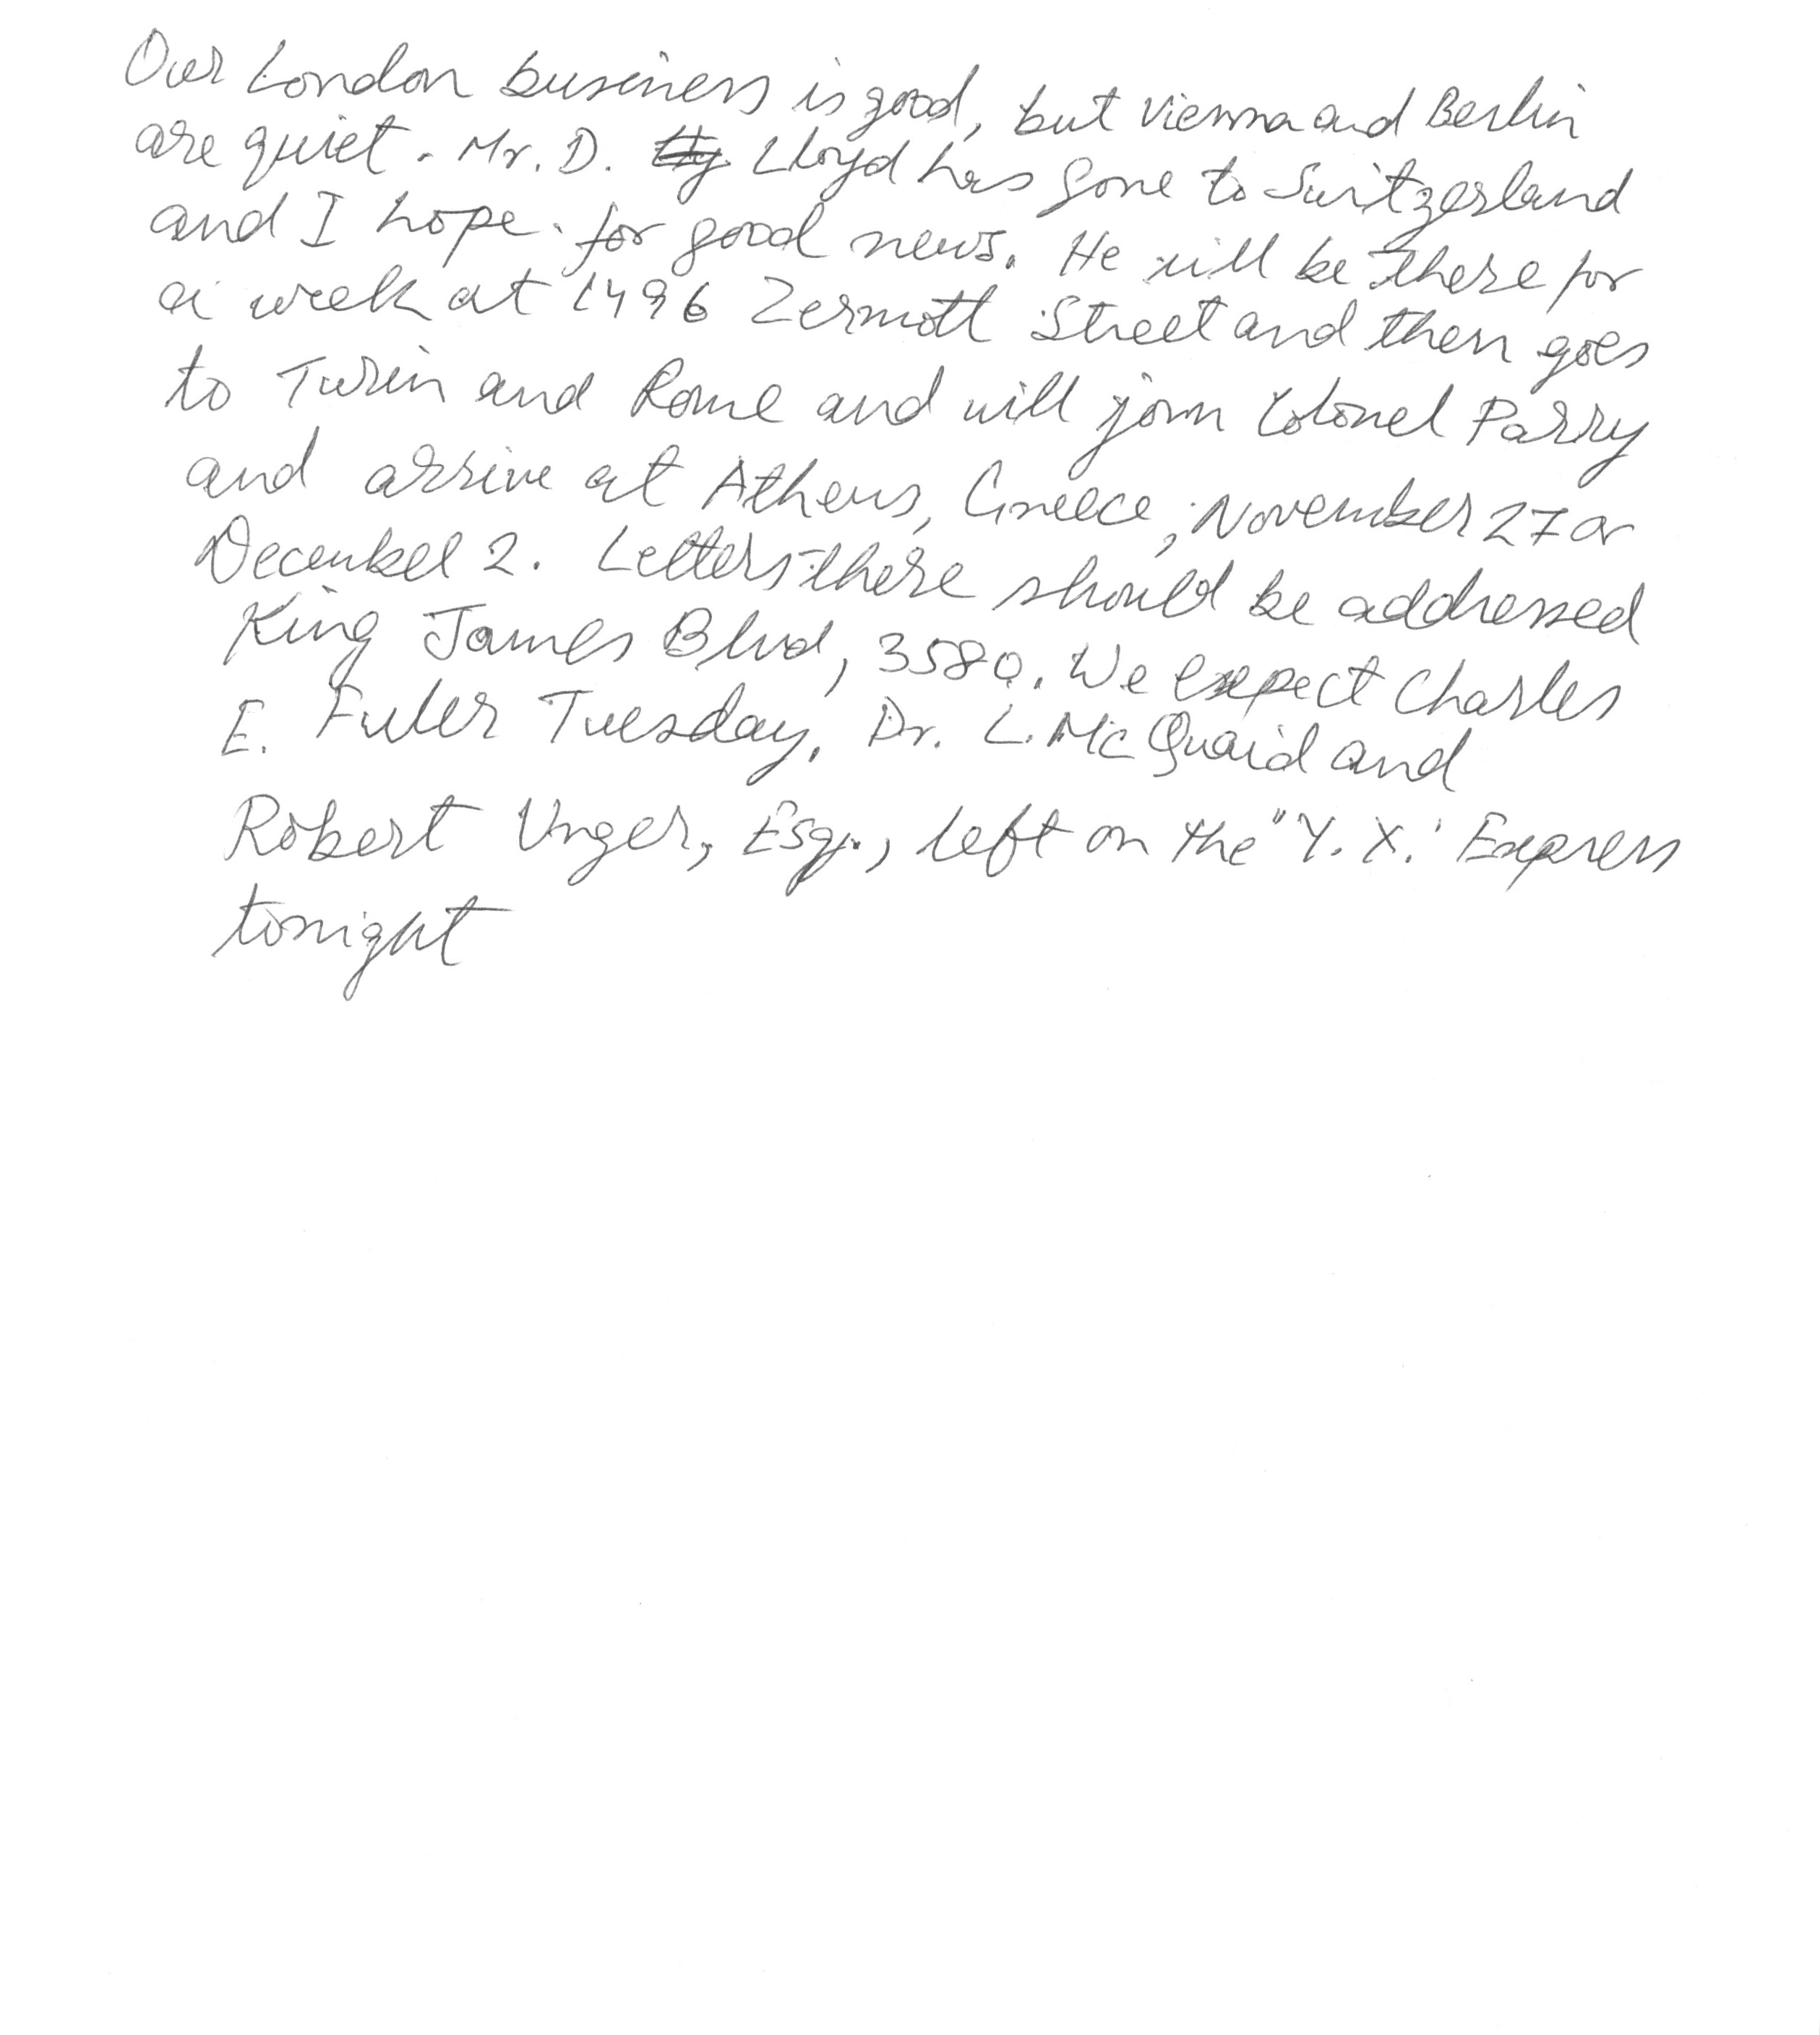 Our London business is good, but Vienna and Berlin
are quiet. Mr. D. Lloyd has gone to Switzerland
and I hope for good news. He will be there for
a week at 1496 Zermott Street and then goes
to Turin and Rome and will join Colonel Parry
and arrive at Athens, Greece, November 27 or
December 2. Letters there should be addressed
King James Blvd, 3580. We expect Charles
E. Fuler Tuesday. Dr. L. McQuaid and
Robert Unger, Esq., left on the "Y. X.' Express
tonight